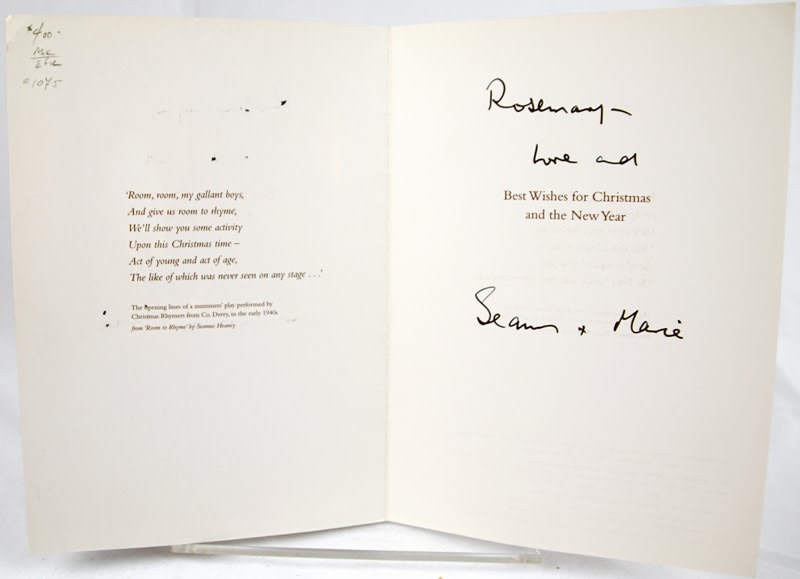 $400-
#1075
'Room, room, my gallant boys,
And give us room to rhyme,
We'll show you some activity
Upon this Christmas time –
Act of young and act of age,
The like of which was never seen on any stage . . .'
The opening lines of a mummers' play performed by
Christmas Rhymers from Co. Derry, in the early 1940s
from 'Room to Rhyme' by Seamus Heaney
Rosemary –
Love and
Best Wishes for Christmas
and the New Year
Seamus + Marie